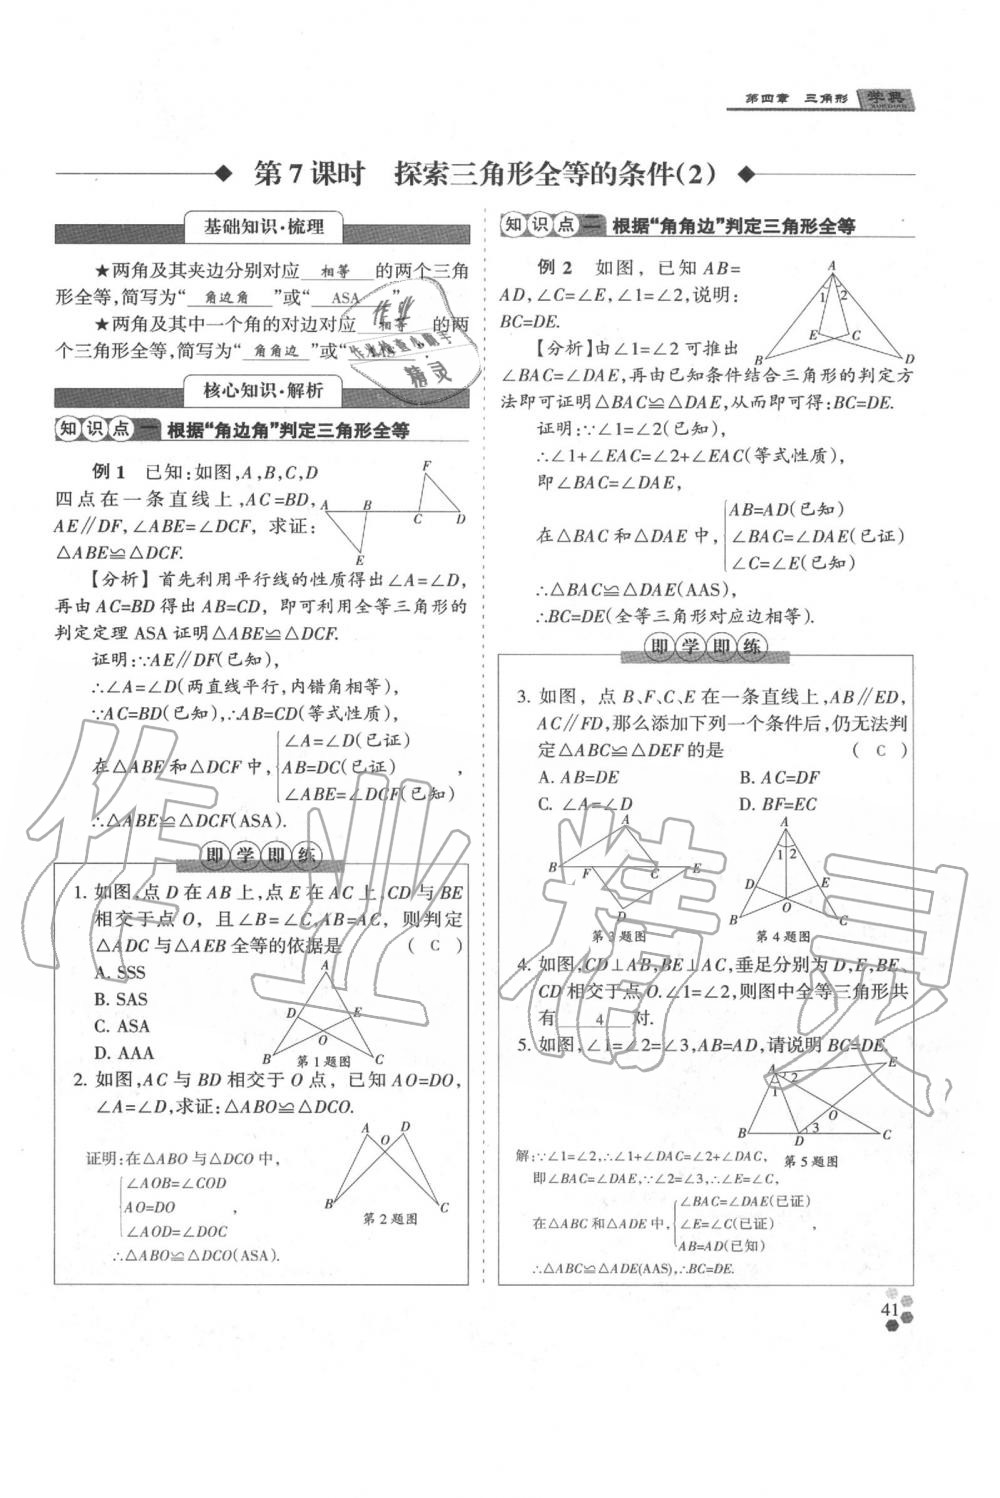 第四章 三角形 学典
XUEDIAN
第7课时 探索三角形全等的条件(2)
基础知识·梳理
★两角及其夹边分别对应 相等 的两个三角
形全等,简写为“ 角边角 ”或“ ASA ”
★两角及其中一个角的对边对应 相等 的两
个三角形全等,简写为“ 角角边 ”或“
作业
作业检查小助手
精灵
核心知识·解析
知识点一 根据“角边角”判定三角形全等
例1 已知:如图,A,B,C,D
四点在一条直线上,AC=BD,
AE∥DF,∠ABE=∠DCF,求证:
△ABE≌△DCF.
A B C D E F
【分析】首先利用平行线的性质得出∠A=∠D,
再由AC=BD得出AB=CD,即可利用全等三角形的
判定定理ASA证明△ABE≌△DCF.
证明:∵AE∥DF(已知),
∴∠A=∠D(两直线平行,内错角相等),
∵AC=BD(已知),∴AB=CD(等式性质),
∠A=∠D(已证)
在△ABE和△DCF中, AB=DC(已证) ,
∠ABE=∠DCF(已知)
∴△ABE≌△DCF(ASA).
即学即练
1. 如图,点D在AB上,点E在AC上,CD与BE
相交于点O,且∠B=∠C,AB=AC,则判定
△ADC与△AEB全等的依据是 ( C )
A. SSS
B. SAS
C. ASA
D. AAA
A D E O B C
第1题图
2. 如图,AC与BD相交于O点,已知AO=DO,
∠A=∠D,求证:△ABO≌△DCO.
证明:在△ABO与△DCO中,
∠AOB=∠COD
AO=DO ,
∠AOD=∠DOC
∴△ABO≌△DCO(ASA).
A O D B C
第2题图
知识点二 根据“角角边”判定三角形全等
例2 如图,已知AB=
AD,∠C=∠E,∠1=∠2,说明:
BC=DE.
A 1 2 E C B D
【分析】由∠1=∠2可推出
∠BAC=∠DAE,再由已知条件结合三角形的判定方
法即可证明△BAC≌△DAE,从而即可得:BC=DE.
证明:∵∠1=∠2(已知),
∴∠1+∠EAC=∠2+∠EAC(等式性质),
即∠BAC=∠DAE,
AB=AD(已知)
在△BAC和△DAE中, ∠BAC=∠DAE(已证)
∠C=∠E(已知)
∴△BAC≌△DAE(AAS),
∴BC=DE(全等三角形对应边相等).
即学即练
3. 如图,点B、F、C、E在一条直线上,AB∥ED,
AC∥FD,那么添加下列一个条件后,仍无法判
定△ABC≌△DEF的是 ( C )
A. AB=DE B. AC=DF
C. ∠A=∠D D. BF=EC
A B F C E D
第3题图
A 1 2 D E O B C
第4题图
4. 如图,CD⊥AB,BE⊥AC,垂足分别为D,E,BE、
CD相交于点O.∠1=∠2,则图中全等三角形共
有 4 对.
5. 如图,∠1=∠2=∠3,AB=AD,请说明BC=DE.
A 1 2 E O B D 3 C
第5题图
解:∵∠1=∠2,∴∠1+∠DAC=∠2+∠DAC,
即∠BAC=∠DAE,∵∠2=∠3,∴∠E=∠C,
∠BAC=∠DAE(已证)
在△ABC和△ADE中, ∠E=∠C(已证) ,
AB=AD(已知)
∴△ABC≌△ADE(AAS),∴BC=DE.
作业精灵
41